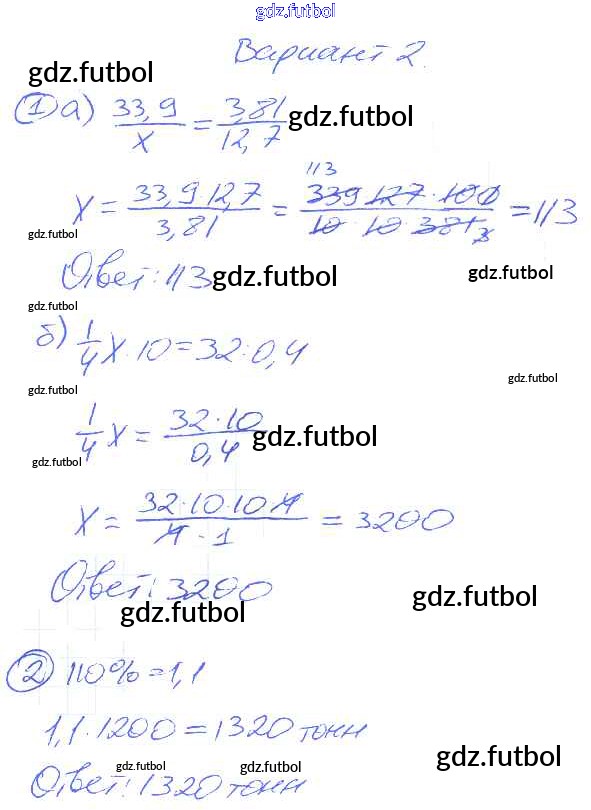 gdz.futbol
Вариант 2.
gdz.futbol
1 а) 33,9/x = 3,81/12,7 gdz.futbol
113
x = 33,9 12,7/3,81 = 339 127 · 100/10 · 10 381 3 = 113
gdz.futbol
Ответ: 113 gdz.futbol gdz.futbol
gdz.futbol
б) 1/4 x · 10 = 32 : 0,4
gdz.futbol gdz.futbol
1/4 x = 32 · 10/0,4 gdz.futbol
gdz.futbol
x = 32 · 10 · 10 4/4 · 1 = 3200
Ответ: 3200
gdz.futbol gdz.futbol
2 110% = 1,1
1,1 · 1200 = 1320 тонн
gdz.futbol gdz.futbol gdz.futbol
Ответ: 1320 тонн